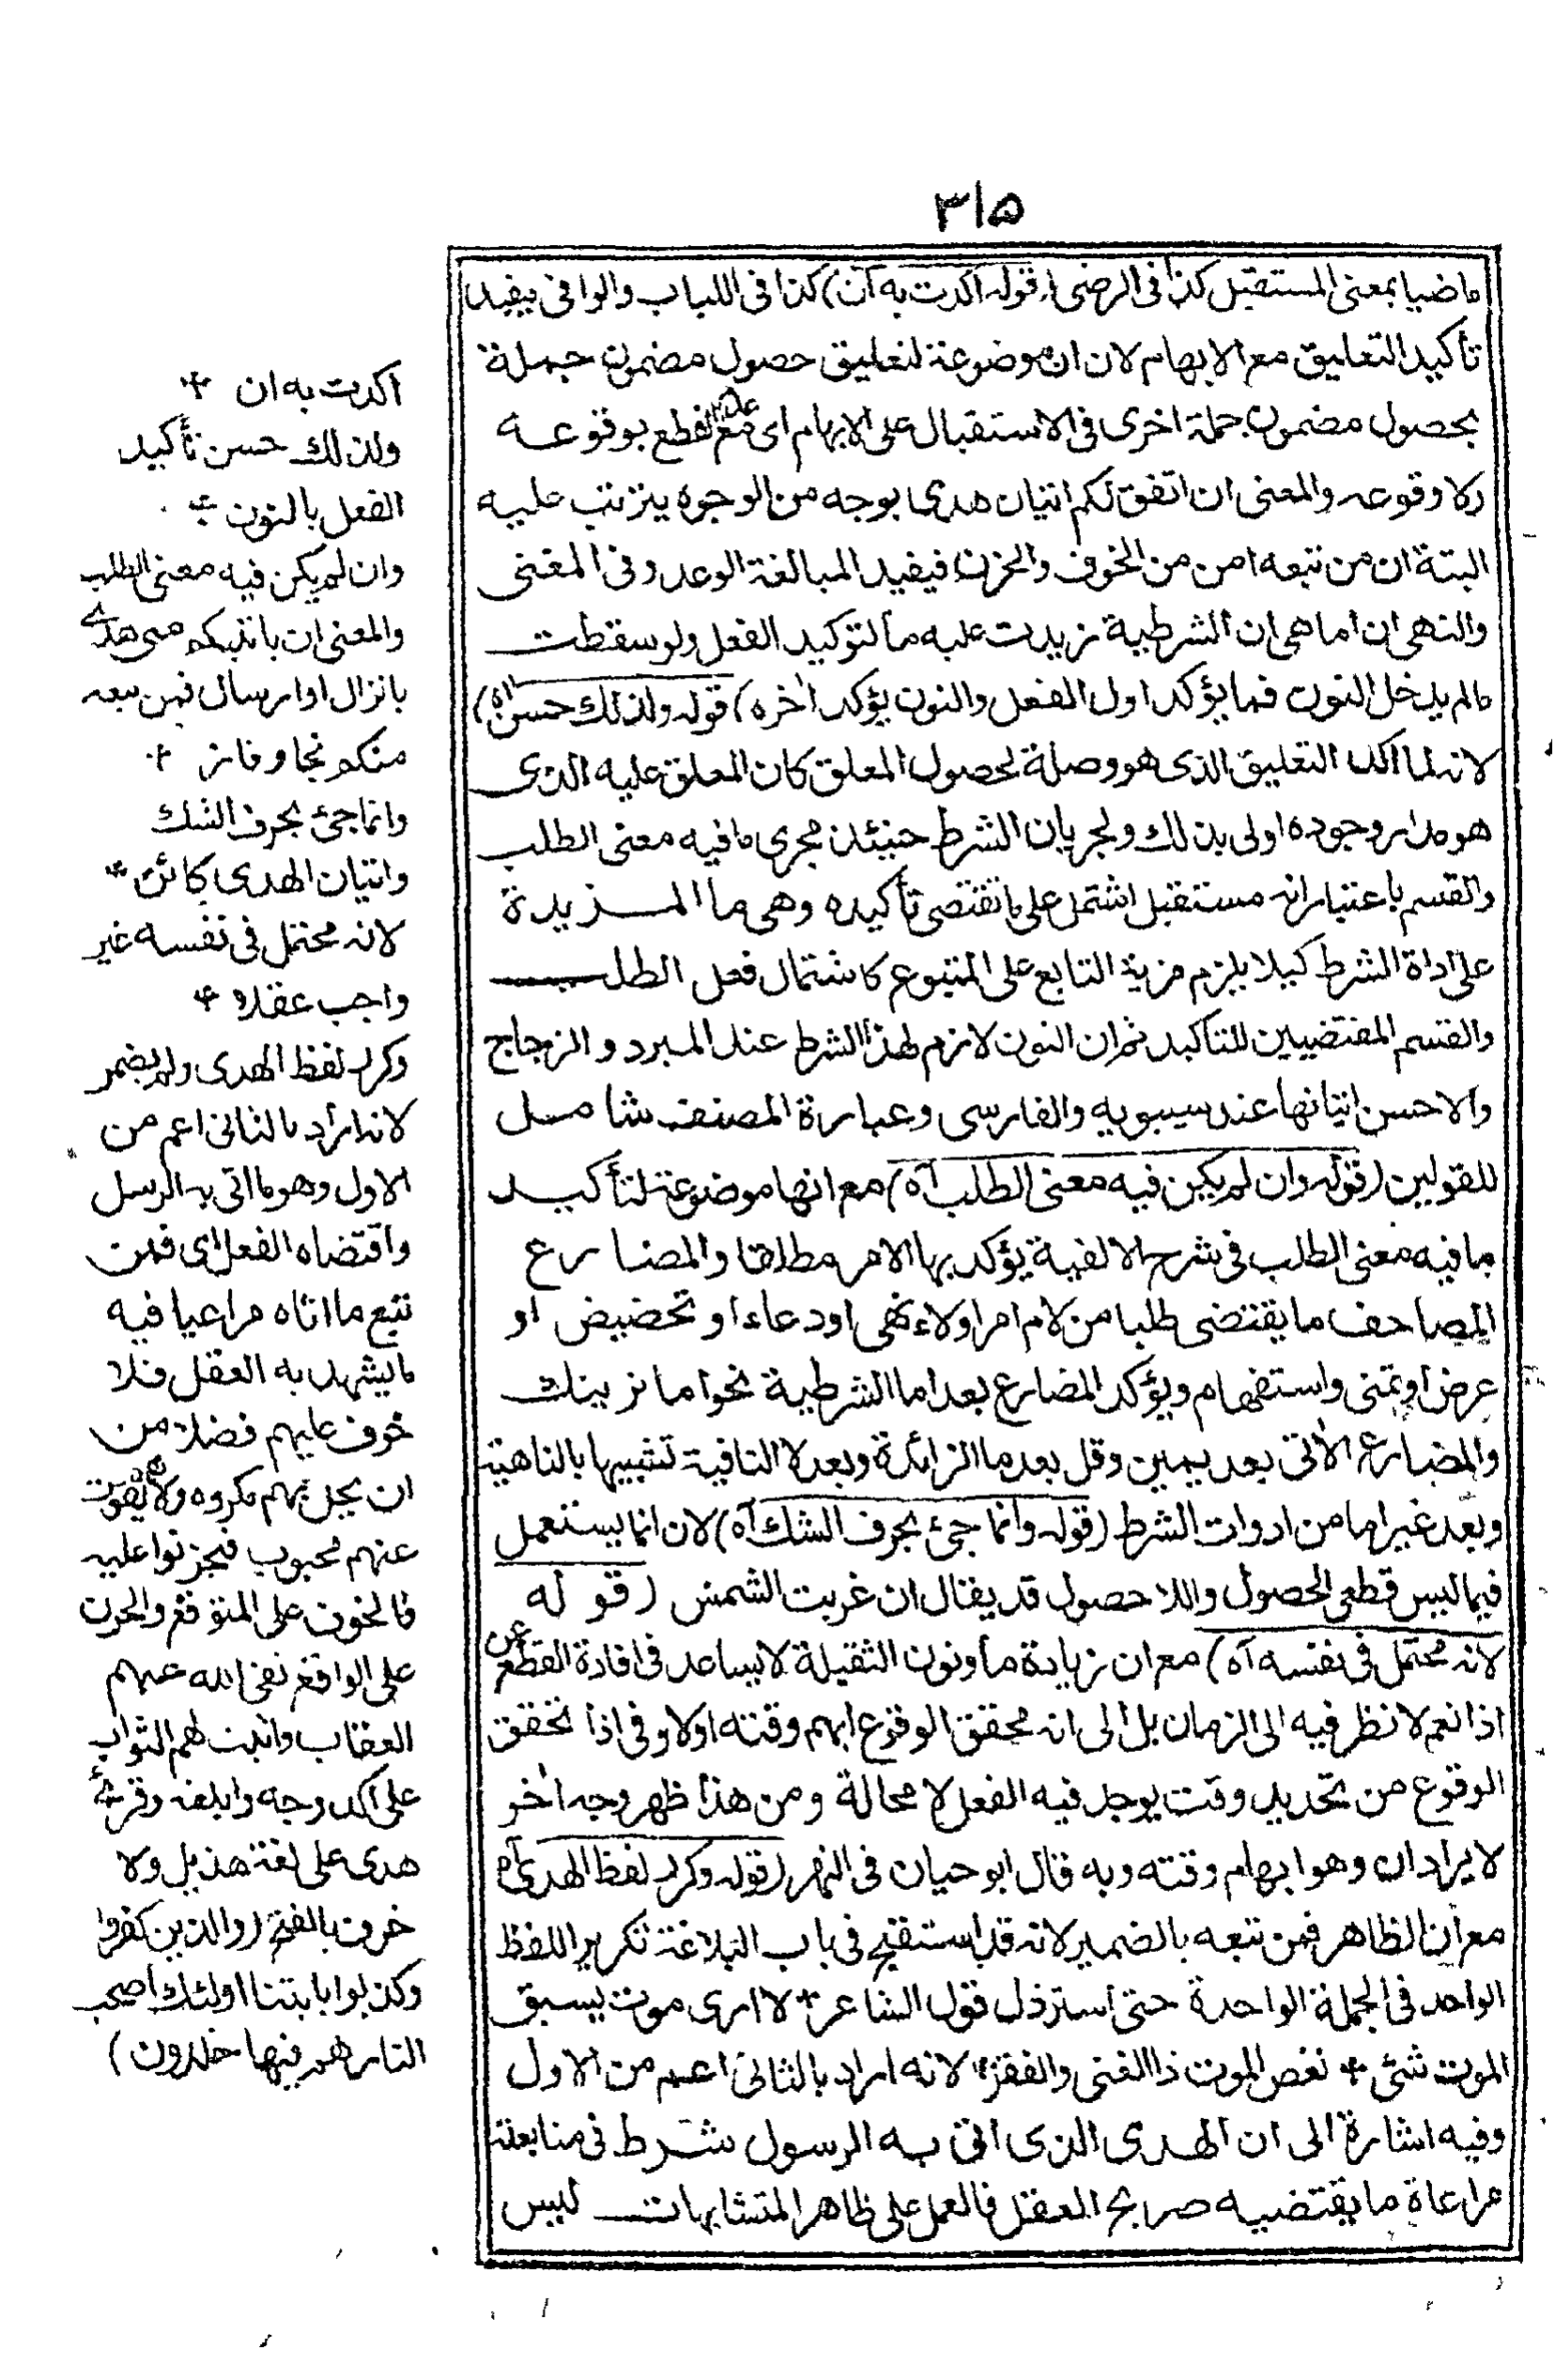 ٣١٥
ماضيا بمعنى المستقبل كذا فى الرضى (قوله اكدت به آن) كذا فى اللباب والوافى يفيد
تأكيد التعليق مع الابهام لان ان موضوعة لتعليق حصول مضمون جملة
بحصول مضمون جملة اخرى فى الاستقبال على الابهام اى عدم القطع بوقوعه
ولا وقوعه والمعنى ان اتفق لكم اتيان هدى بوجه من الوجوه يترتب عليه
البتة ان من تبعه امن من الخوف والحزن فيفيد المبالغة الوعد وفى المغنى
والنهى ان اما هى ان الشرطية زيدت عليه ما لتوكيد الفعل ولو سقطت
مالم يدخل النون فما يؤكد اول الفعل والنون يؤكد اخره (قوله ولذلك حسن اه)
لانه لما اكد التعليق الذى هو وصلة لحصول المعلق كان المعلق عليه الذى
هو مدار وجوده اولى بذلك ولجريان الشرط حينئذ مجرى ما فيه معنى الطلب
والقسم باعتبار انه مستقبل اشتمل على ما تقتضى تأكيده وهى ما المزيدة
على اداة الشرط كيلا يلزم مزية التابع على المتبوع كاشتمال فعل الطلب
والقسم المقتضيين للتاكيد ثم ان النون لازم لهذا الشرط عند المبرد والزجاج
والاحسن اتيانها عند سيبويه والفارسى وعبارة المصنف شامل
للقولين (قوله وان لم يكن فيه معنى الطلب آه) مع انها موضوعة لتأكيد
ما فيه معنى الطلب فى شرح الالفية يؤكد بها الامر مطلقا والمضارع
المصاحف ما يقتضى طلبا من لام امر او لاء نهى او دعاء او تحضيض او
عرض او تمنى واستفهام ويؤكد المضارع بعد اما الشرطية نحو اما نرينك
والمضارع الأتى بعد يمين وقل بعد ما الزائدة وبعد لا النافية تشبيها بالناهية
وبعد غير اما من ادوات الشرط (قوله وانما جئ بحرف الشك آه) لان انما يستعمل
فيما ليس قطعى الحصول واللاحصول قد يقال ان غربت الشمس (قوله
لانه محتمل فى نفسه آه) مع ان زيادة ما ونون الثقيلة لا يساعد فى افادة القطع عن
اذا نعم لا نظر فيه الى الزمان بل الى انه محقق الوقوع ابهم وقته اولا وفى اذا تحقق
الوقوع من تحديد وقت يوجد فيه الفعل لا محالة ومن هذا ظهر وجه اخر
لايراد ان وهو ابهام وقته وبه قال ابو حيان فى النهر (قوله وكرر لفظ الهدى آه
مع ان الظاهر فمن تبعه بالضمير لانه قد استقبح فى باب البلاغة تكرير اللفظ
الواحد فى الجملة الواحدة حتى استرذل قول الشاعر * لا ارى موت يسبق
الموت شئ * نغص الموت ذا الغنى والفقرا * لانه اراد بالثانى اعم من الاول
وفيه اشارة الى ان الهدى الذى اتى به الرسول شرط فى متابعته
مراعاة ما يقتضيه صريح العقل فالعمل على ظاهر المتشابهات ليس
اكدت به ان *
ولذلك حسن تأكيد
الفعل بالنون *
وان لم يكن فيه معنى الطلب
والمعنى ان ياتينكم منى هدى
بانزال او ارسال فمن تبعه
منكم نجا وفاز *
وانما جئ بحرف الشك
واتيان الهدى كائن *
لانه محتمل فى نفسه غير
واجب عقلا *
وكرر لفظ الهدى ولم يضمر
لانه اراد بالثانى اعم من
الاول وهو ما اتى به الرسل
واقتضاه الفعل اى فمن
تبع ما اتاه مراعيا فيه
ما يشهد به العقل فلا
خوف عليهم فضلا من
ان يحل بهم مكروه ولا هم يفوت
عنهم محبوب فيحزنوا عليه
فالخوف على المتوقع والحزن
على الواقع نفى الله عنهم
العقاب واثبت لهم الثواب
على اكد وجه وابلغه وقرئ
هدى على لغة هذيل ولا
خوف بالفتح (والذين كفروا
وكذبوا بايتنا اولئك اصحب
النار هم فيها خلدون)